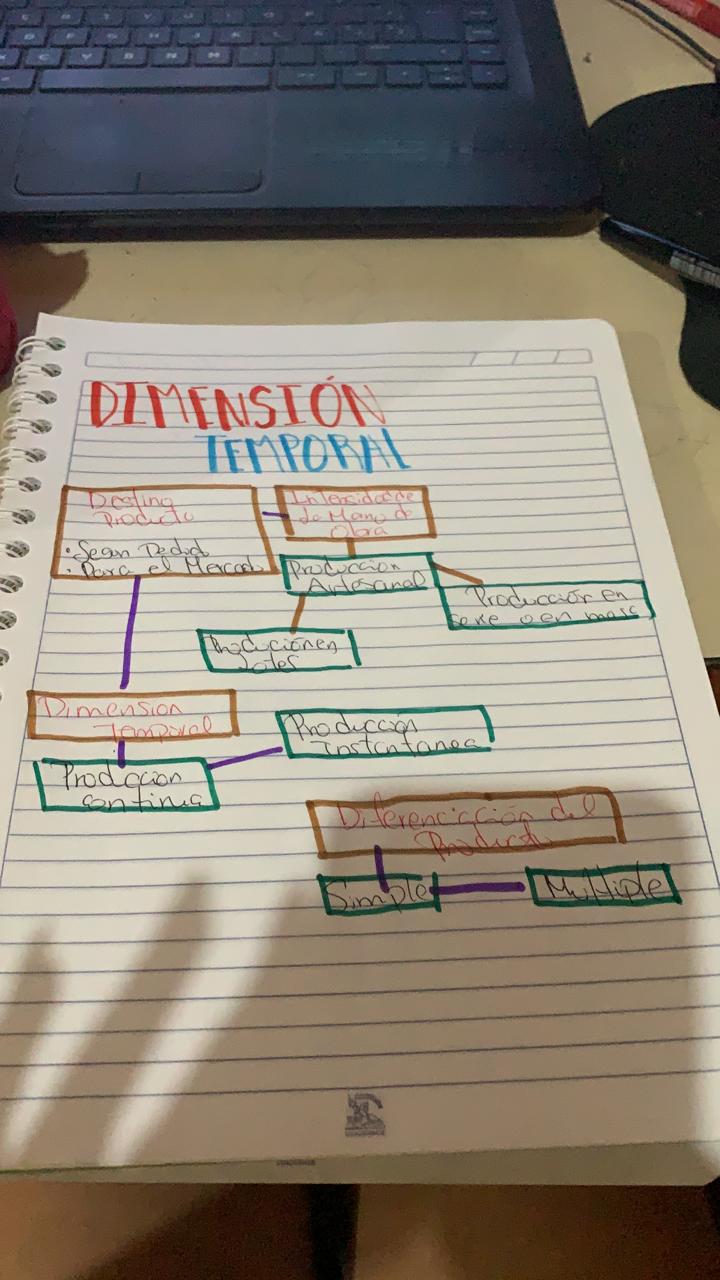 DIMENSIÓN
TEMPORAL
Destino
Producto
• Sean Pedid
• Para el Mercado
Intensidad de
la Mano de
Obra
Produccion
Artesanal
Producción en
serie o en masa
Produccion en
Lotes
Dimension
Temporal
Producción
Instantanea
Prodccion
continua
Diferenciación del
Producto
Simple
Multiple